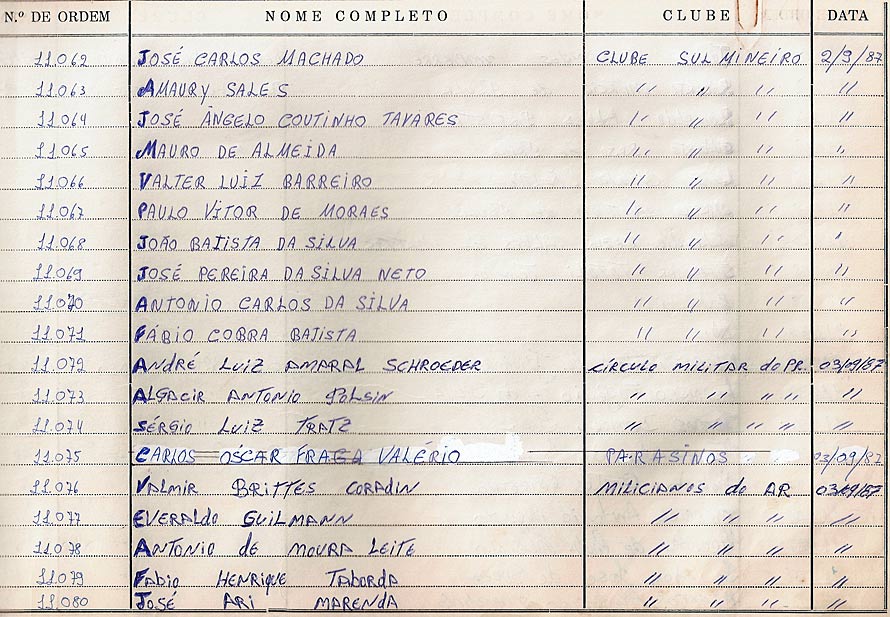 N.º DE ORDEM NOME COMPLETO CLUBE DATA
11.062 JOSÉ CARLOS MACHADO CLUBE SUL MINEIRO 2/9/87
11.063 AMAURY SALES " " " "
11.064 JOSÉ ÂNGELO COUTINHO TAVARES " " " "
11.065 MAURO DE ALMEIDA " " " "
11.066 VALTER LUIZ BARREIRO " " " "
11.067 PAULO VITOR DE MORAES " " " "
11.068 JOÃO BATISTA DA SILVA " " " "
11.069 JOSÉ PEREIRA DA SILVA NETO " " " "
11.070 ANTONIO CARLOS DA SILVA " " " "
11.071 FÁBIO COBRA BATISTA " " " "
11.072 ANDRÉ LUIZ AMARAL SCHROEDER CÍRCULO MILITAR do PR. 03/09/87
11.073 ALGACIR ANTONIO POLSIN " " " " "
11.074 SÉRGIO LUIZ TRATZ " " " " "
11.075 CARLOS OSCAR FRAGA VALÉRIO PARASINOS 03/09/87
11.076 VALMIR BRITTES CORADIN MILICIANOS do AR 03/09/87
11.077 EVERALdo GUILMANN " " " "
11.078 ANTONIO de MOURA LEITE " " " "
11.079 FABIO HENRIQUE TABORDA " " " "
11.080 JOSÉ ARI MARENDA " " " "